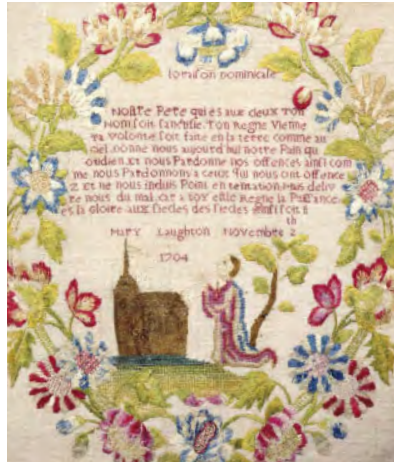 loraison dominicale
Nostre Pere qui es aux cieux Ton
Nom soit sanctifie. Ton Regne Vienne
Ta volonte soit faite en la terre comme au
ciel. Donne nous aujourd hui notre Pain qu
oudien. Et nous Pardonne nos offences ainsi com
me nous Pardonnons a ceux qui nous ont offence
z Et ne nous induis Point en tentation. Mais deliv
re nous du mal. car a toy est le Regne la Puissance
et la gloire aux siecles des siecles ainsi soit il
th
Mary Laughton Novembre 2
1704